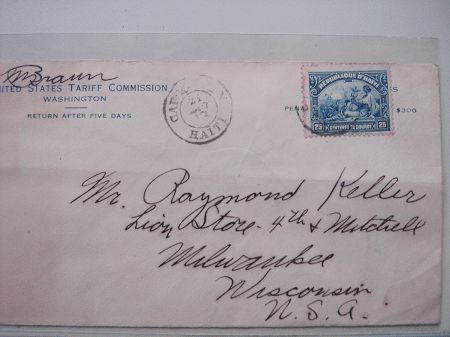 Braun
UNITED STATES TARIFF COMMISSION
WASHINGTON
RETURN AFTER FIVE DAYS
HAITI
REPUBLIQUE D'HAITI
25 CENTIMES DE GOURDE 25
$300
Mr. Raymond Keller
Lion Store - 4th & Mitchell
Milwaukee
Wisconsin
U. S. A.